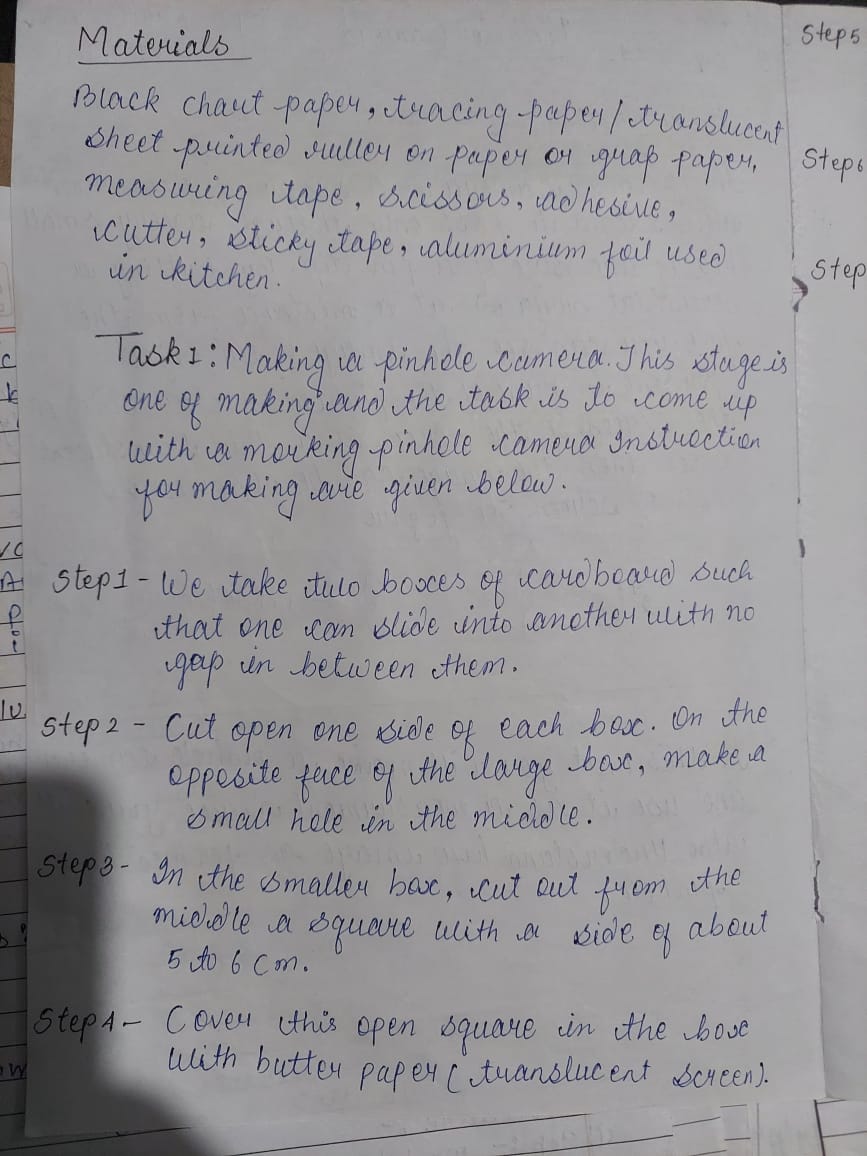 Materials
Black chart paper, tracing paper/translucent
sheet printed rulley on paper or grap paper,
measuring tape, scissors, adhesive,
cutter, sticky tape, aluminium foil used
in kitchen.
Task 1: Making a pinhole camera. This stage is
one of making and the task is to come up
with a morking pinhole camera Instruction
for making are given below.
Step 1 - We take two boxes of cardboard such
that one can slide into another with no
gap in between them.
Step 2 - Cut open one side of each box. On the
opposite face of the large box, make a
small hole in the middle.
Step 3 - In the smaller box, cut out from the
middle a square with a side of about
5 to 6 cm.
Step 4 - Cover this open square in the box
with butter paper (translucent screen).
Step 5
Step 6
Step